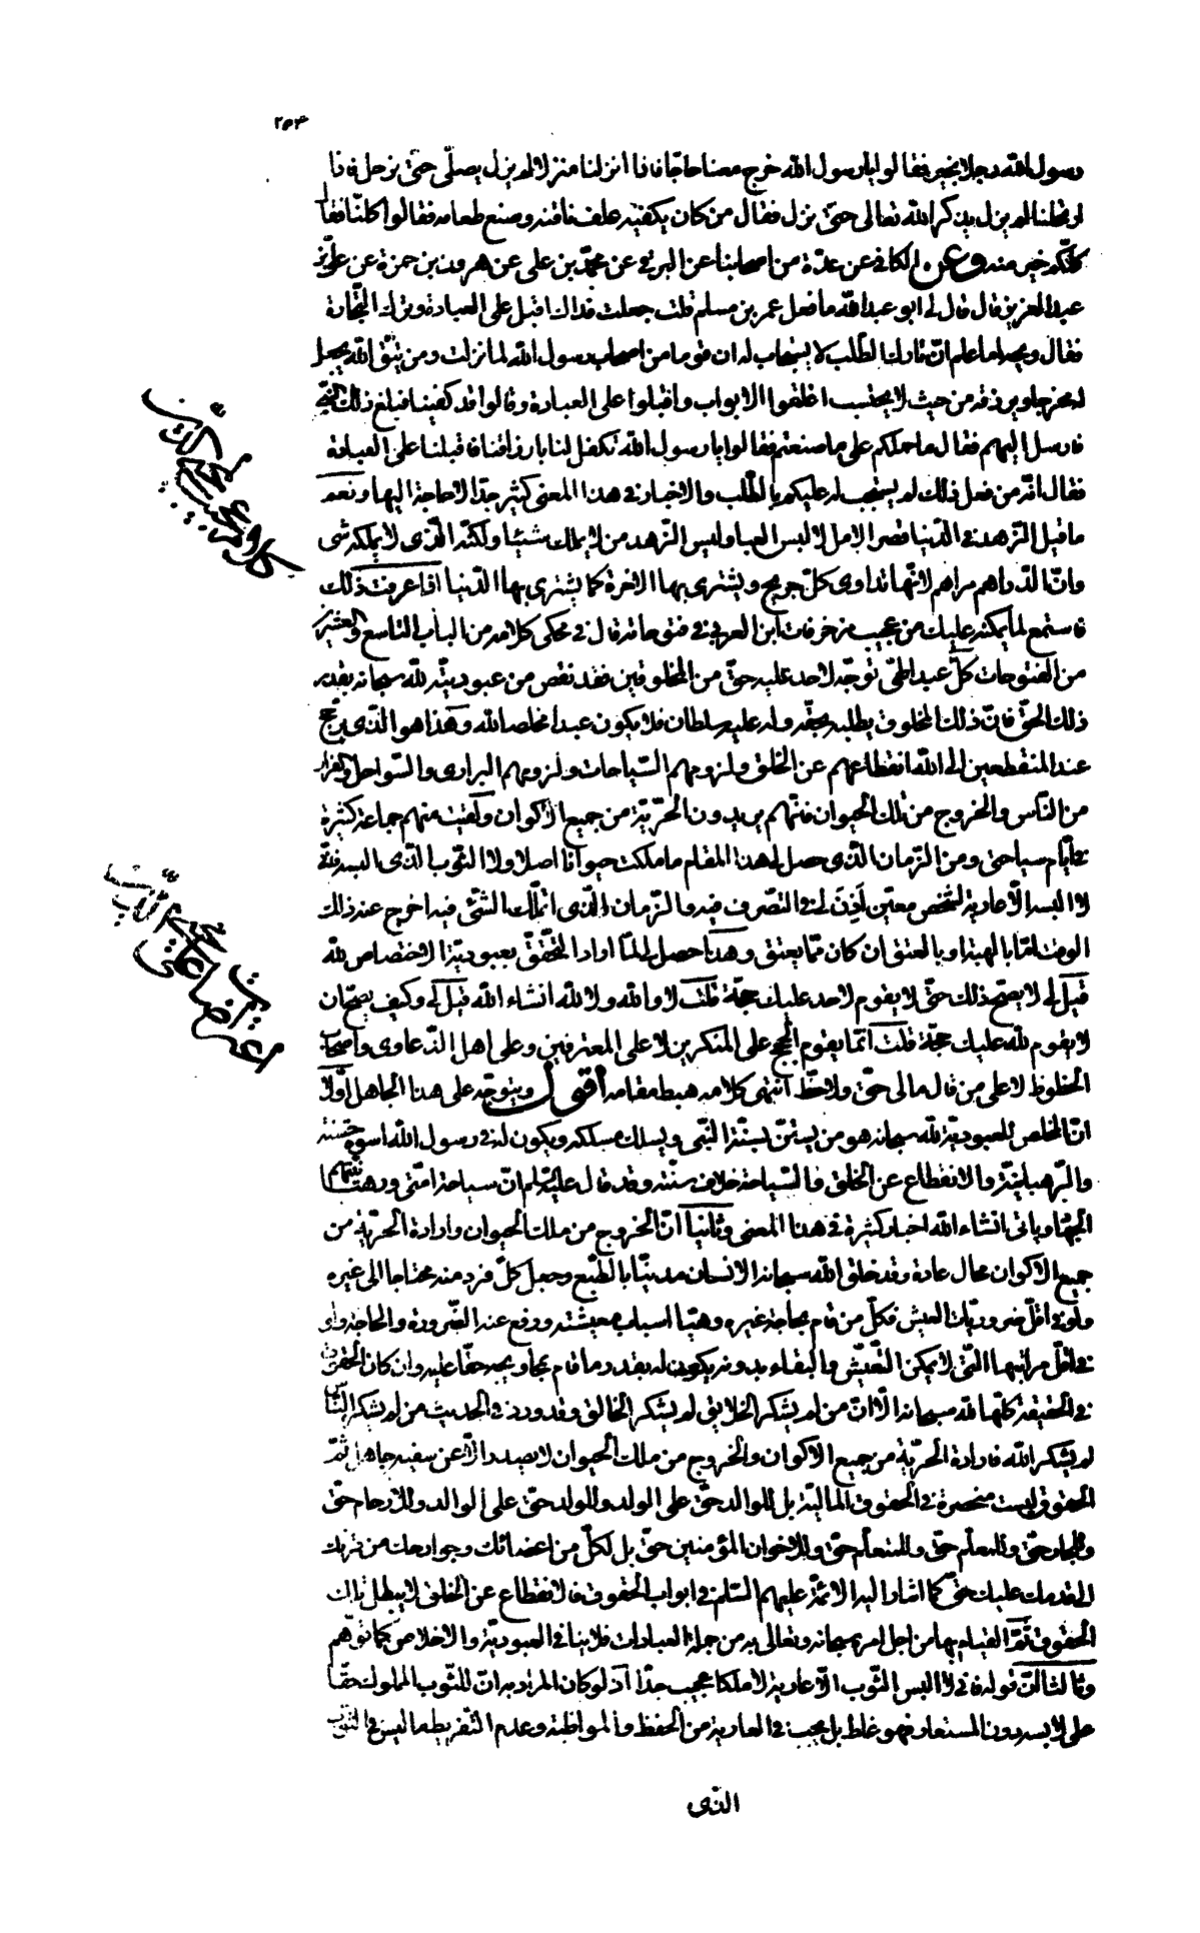 ٢٥٤
رسول الله رجلا بخير فقالوا يا رسول الله خرج معنا حاجا فاذا انزلنا منزلا لم يزل يصلّى حتى نرحل فاذا
ارتحلنا لم يزل يذكر الله تعالى حتى ننزل فقال من كان يكفيه علف ناقته وصنع طعامه فقالوا كلنّا فقال
كلّكم خير منه وعن الكافى عن عدّة من اصحابنا عن البرقى عن محمّد بن على عن هرون بن حمزة عن علىّ بن
عبد العزيز قال قال لى ابو عبد الله ما فعل عمر بن مسلم قلت جعلت فداك اقبل على العبادة وترك التجّارة
فقال ويحه اما علم انّ تارك الطّلب لا يستجاب له ان قوما من اصحاب رسول الله لما نزلت ومن يتّق الله يجعل
له مخرجا ويرزقه من حيث لا يحتسب اغلقوا الابواب واقبلوا على العبادة وقالوا قد كفينا فبلغ ذلك النبىّ
فارسل اليهم فقال ما حملكم على ما صنعتم فقالوا يا رسول الله تكفل لنا بارزاقنا فاقبلنا على العبادة
فقال انّه من فعل ذلك لم يستجب له عليكم بالطّلب والاخبار فى هذا المعنى كثير جدّا لا حاجة اليها ونعم
ما قيل الزّهد فى الدّنيا قصر الامل لا لبس العبا وليس الزّهد من لا يملك شيئا ولكنّه الّذى لا يملكه شى
وانّ الدّراهم مراهم لانّها تداوى كلّ جريح ويشترى بها الاخرة كما يشترى بها الدّنيا اذا عرفت ذلك
فاستمع لما يمكنه عليك من عجيب مزخرفات ابن العربى فى فتوحاته قال فى محكى كلامه من الباب التاسع والعشرين
من الفتوحات كلّ عبد الهىّ توجّه لاحد عليه حقّ من المخلوقين فقد نقص من عبوديتّه لله سبحانه بقدر
ذلك الحقّ فانّ ذلك المخلوق يطلبه بحقّه وله عليه سلطان فلا يكون عبدا مخلصا لله وهذا هو الّذى يرجّح
عند المنقطعين الى الله انقطاعهم عن الخلق ولزومهم السّياحات ولزومهم البرارى والسّواحل والفرار
من النّاس والخروج من ملك الحيوان فانّهم يريدون الحرّيّة من جميع الاكوان ولقيت منهم جماعة كثيرة
فى ايّام سياحتى ومن الزّمان الّذى حصل لى هذا المقام ما ملكت حيوانا اصلا ولا الثّوب الّذى البسه فانّى
لا البسه الّا عارية لشخص معيّن اَذِنَ لى فى التصّرف فيه والزّمان الّذى اتملّك الشّئ فيه اخرج عنه ذلك
الوقت امّا بالهبة او بالعتق ان كان ممّا يعتق وهذا حصل لى لمّا اراد التّحقّق بعبوديّة الاختصاص لله
قيل لى لا يصّح ذلك حتّى لا يقوم لاحد عليك حجّة قلت لا والله ولا لله انشاء الله قيل لى وكيف يصحّ ان
لا يقوم لله عليك حجّة قلت انّما يقوم الحجج على المنكرين لا على المعترفين وعلى اهل الدّعاوى واصحاب
الحظوظ لا على من قال مالى حقّ ولا حظّ انتهى كلامه هبط مقامه اقول ويتوجّه على هذا الجاهل اوّلا
انّ المخلص للعبوديّة لله سبحانه هو من يستنّ بسنّة النّبى ويسلك مسلكه ويكون له فى رسول الله اسوة حسنة
والرّهبانيّة والانقطاع عن الخلق والسّياحة خلاف سنّته وقد قال عليه السّلم انّ سياحة امّتى ورهبانيّتهم
الجهاد وياتى انشاء الله اخبار كثيرة فى هذا المعنى وثانيا انّ الخروج من ملك الحيوان وارادة الحرّيّة من
جميع الاكوان محال عادة وقد خلق الله سبحانه الانسان مدنيّا بالطّبع وجعل كلّ فرد منه محتاجا الى غيره
ولو فى اقلّ ضروريّات العيش فكلّ من قام بحاجة غيره وهيّا اسباب معيشته ورفع عنه الضّرورة والحاجة ولو
فى اقلّ مراتبها الّتى لا يمكن التّعيّش والبقاء بدونه يكون له بقدر ما قام بحاويجه حقّا عليه وان كان الحقوق
فى الحقيقة كلّها لله سبحانه الّا انّ من لم يشكر الخلايق لم يشكر الخالق وقد ورد فى الحديث من لم يشكر النّاس
لم يشكر الله فارادة الحرّيّة من جميع الاكوان والخروج من ملك الحيوان لا يصدر الّا عن سفيه جاهل ثمّ
الحقوق ليست منحصرة فى الحقوق الماليّة بل للوالد حقّ على الولد وللولد حقّ على الوالد وللارحام حقّ
وللجار حقّ وللمعلّم حقّ وللمتعلّم حقّ وللاخوان المؤمنين حقّ بل لكلّ من اعضائك وجوارحك من قرنك
الى قدمك عليك حقّ كما اشار اليه الائمّة عليهم السّلم فى ابواب الحقوق فالانقطاع عن الخلق لا يبطل تلك
الحقوق ثمّ القيام بها من اجل امره سبحانه وتعالى به من جملة العبادات فلا ينافى العبوديّة والاخلاص كما توهّم
وثالثا انّ قوله فانى لا البس الثّوب الّا عارية لا ملكا عجيب جدّا اذ لو كان المراد به انّ للثّوب المملوك حقّا
على لابسه دون المستعار فهو غلط بل يجب فى العارية من الحفظ والمواظبة وعدم التّفريط ما ليس فى الثّوب
الذّى